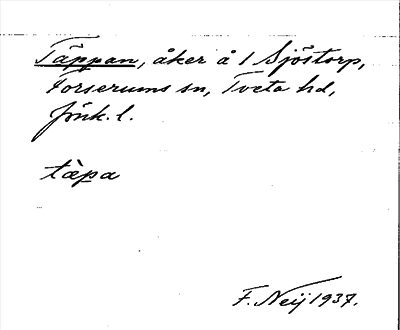 Täppan, åker å 1 Sjöstorp,
Forserums sn, Tveta hd,
Jönk. l.
tàpa
F. Neij 1937.